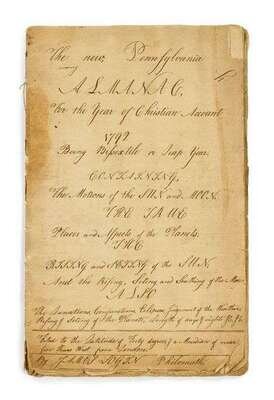 The new Pennsylvania
ALMANAC,
For the Year of Christian Account
1792
Being Bissextile or Leap Year.
CONTAINING.
The Motions of the SUN and MOON.
THE TRUE
Places and Aspects of the Planets.
THE
RISING and SETING of the SUN.
And the Rising, Seting and Southing of the Moon
ALSO
The Lunations, Conjunctions Eclipses Judgment of the Weather
Rising & Seting of the Planets, Length of days & nights &c
Fitted to the Latitude of forty degrees & a Meridian of near
five Hours West from London
By JAMES Philomath